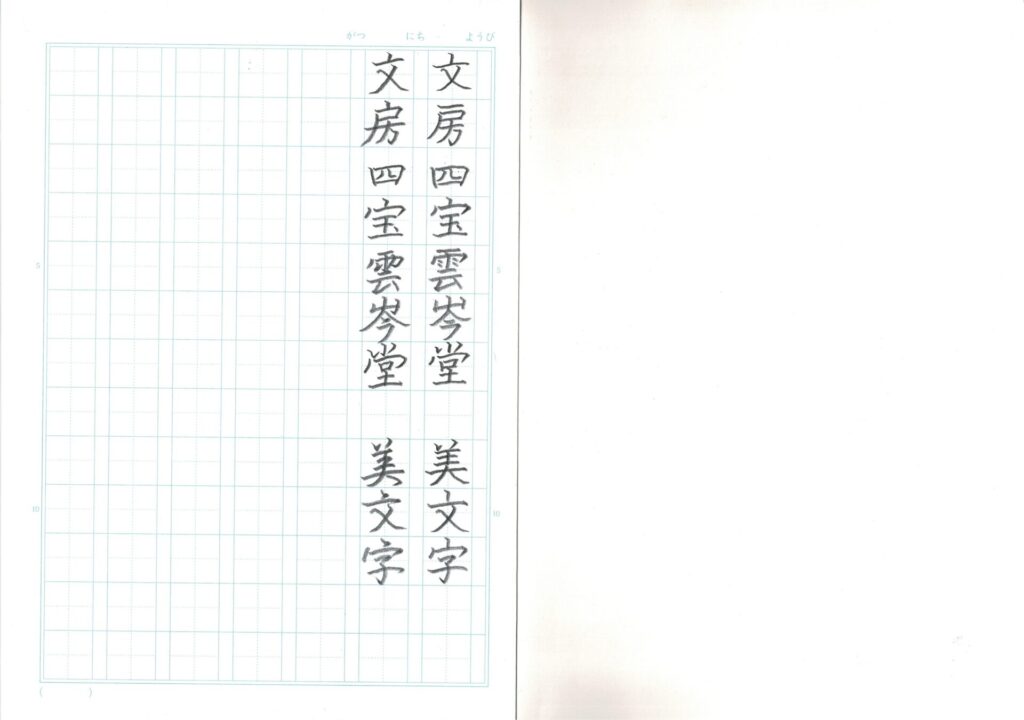 がつ にち ようび
文房四宝雲岑堂 美文字
文房四宝雲岑堂 美文字
5
5
10
10
( )